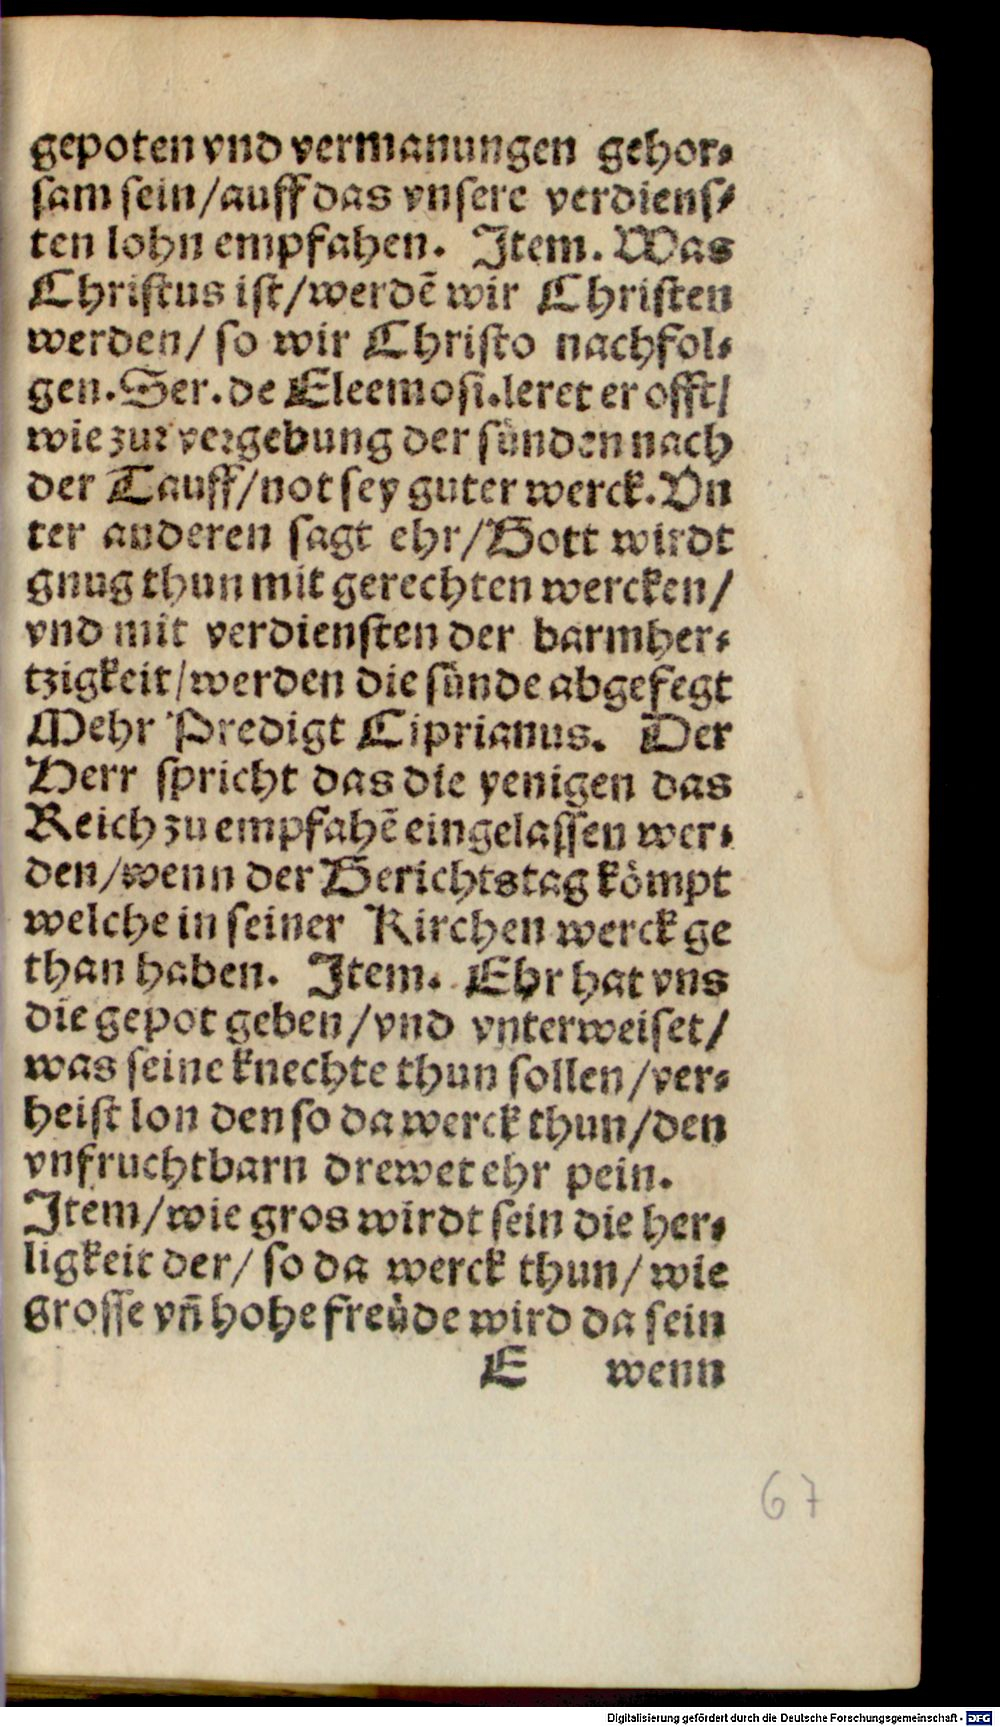 gepoten vnd vermanungen gehor⸗
sam sein/auff das vnsere verdiens⸗
ten lohn empfahen. Item. Was
Christus ist/werdē wir Christen
werden/ so wir Christo nachfol⸗
gen. Ser. de Eleemosi. leret er offt/
wie zur vergebung der sünden nach
der Tauff/not sey guter werck. Vn
ter anderen sagt ehr/Gott wirdt
gnug thun mit gerechten wercken/
vnd mit verdiensten der barmher⸗
tzigkeit/werden die sünde abgefegt
Mehr Predigt Ciprianus. Der
Herr spricht das die yenigen das
Reich zu empfahē eingelassen wer⸗
den/wenn der Gerichtstag kömpt
welche in seiner Kirchen werck ge
than haben. Item. Ehr hat vns
die gepot geben/vnd vnterweiset/
was seine knechte thun sollen/ver⸗
heist lon den so da werck thun/den
vnfruchtbarn drewet ehr pein.
Item/wie gros wirdt sein die her⸗
ligkeit der/ so da werck thun/ wie
grosse vn̄ hohe freüde wird da sein
E wenn
67
Digitalisierung gefördert durch die Deutsche Forschungsgemeinschaft - DFG